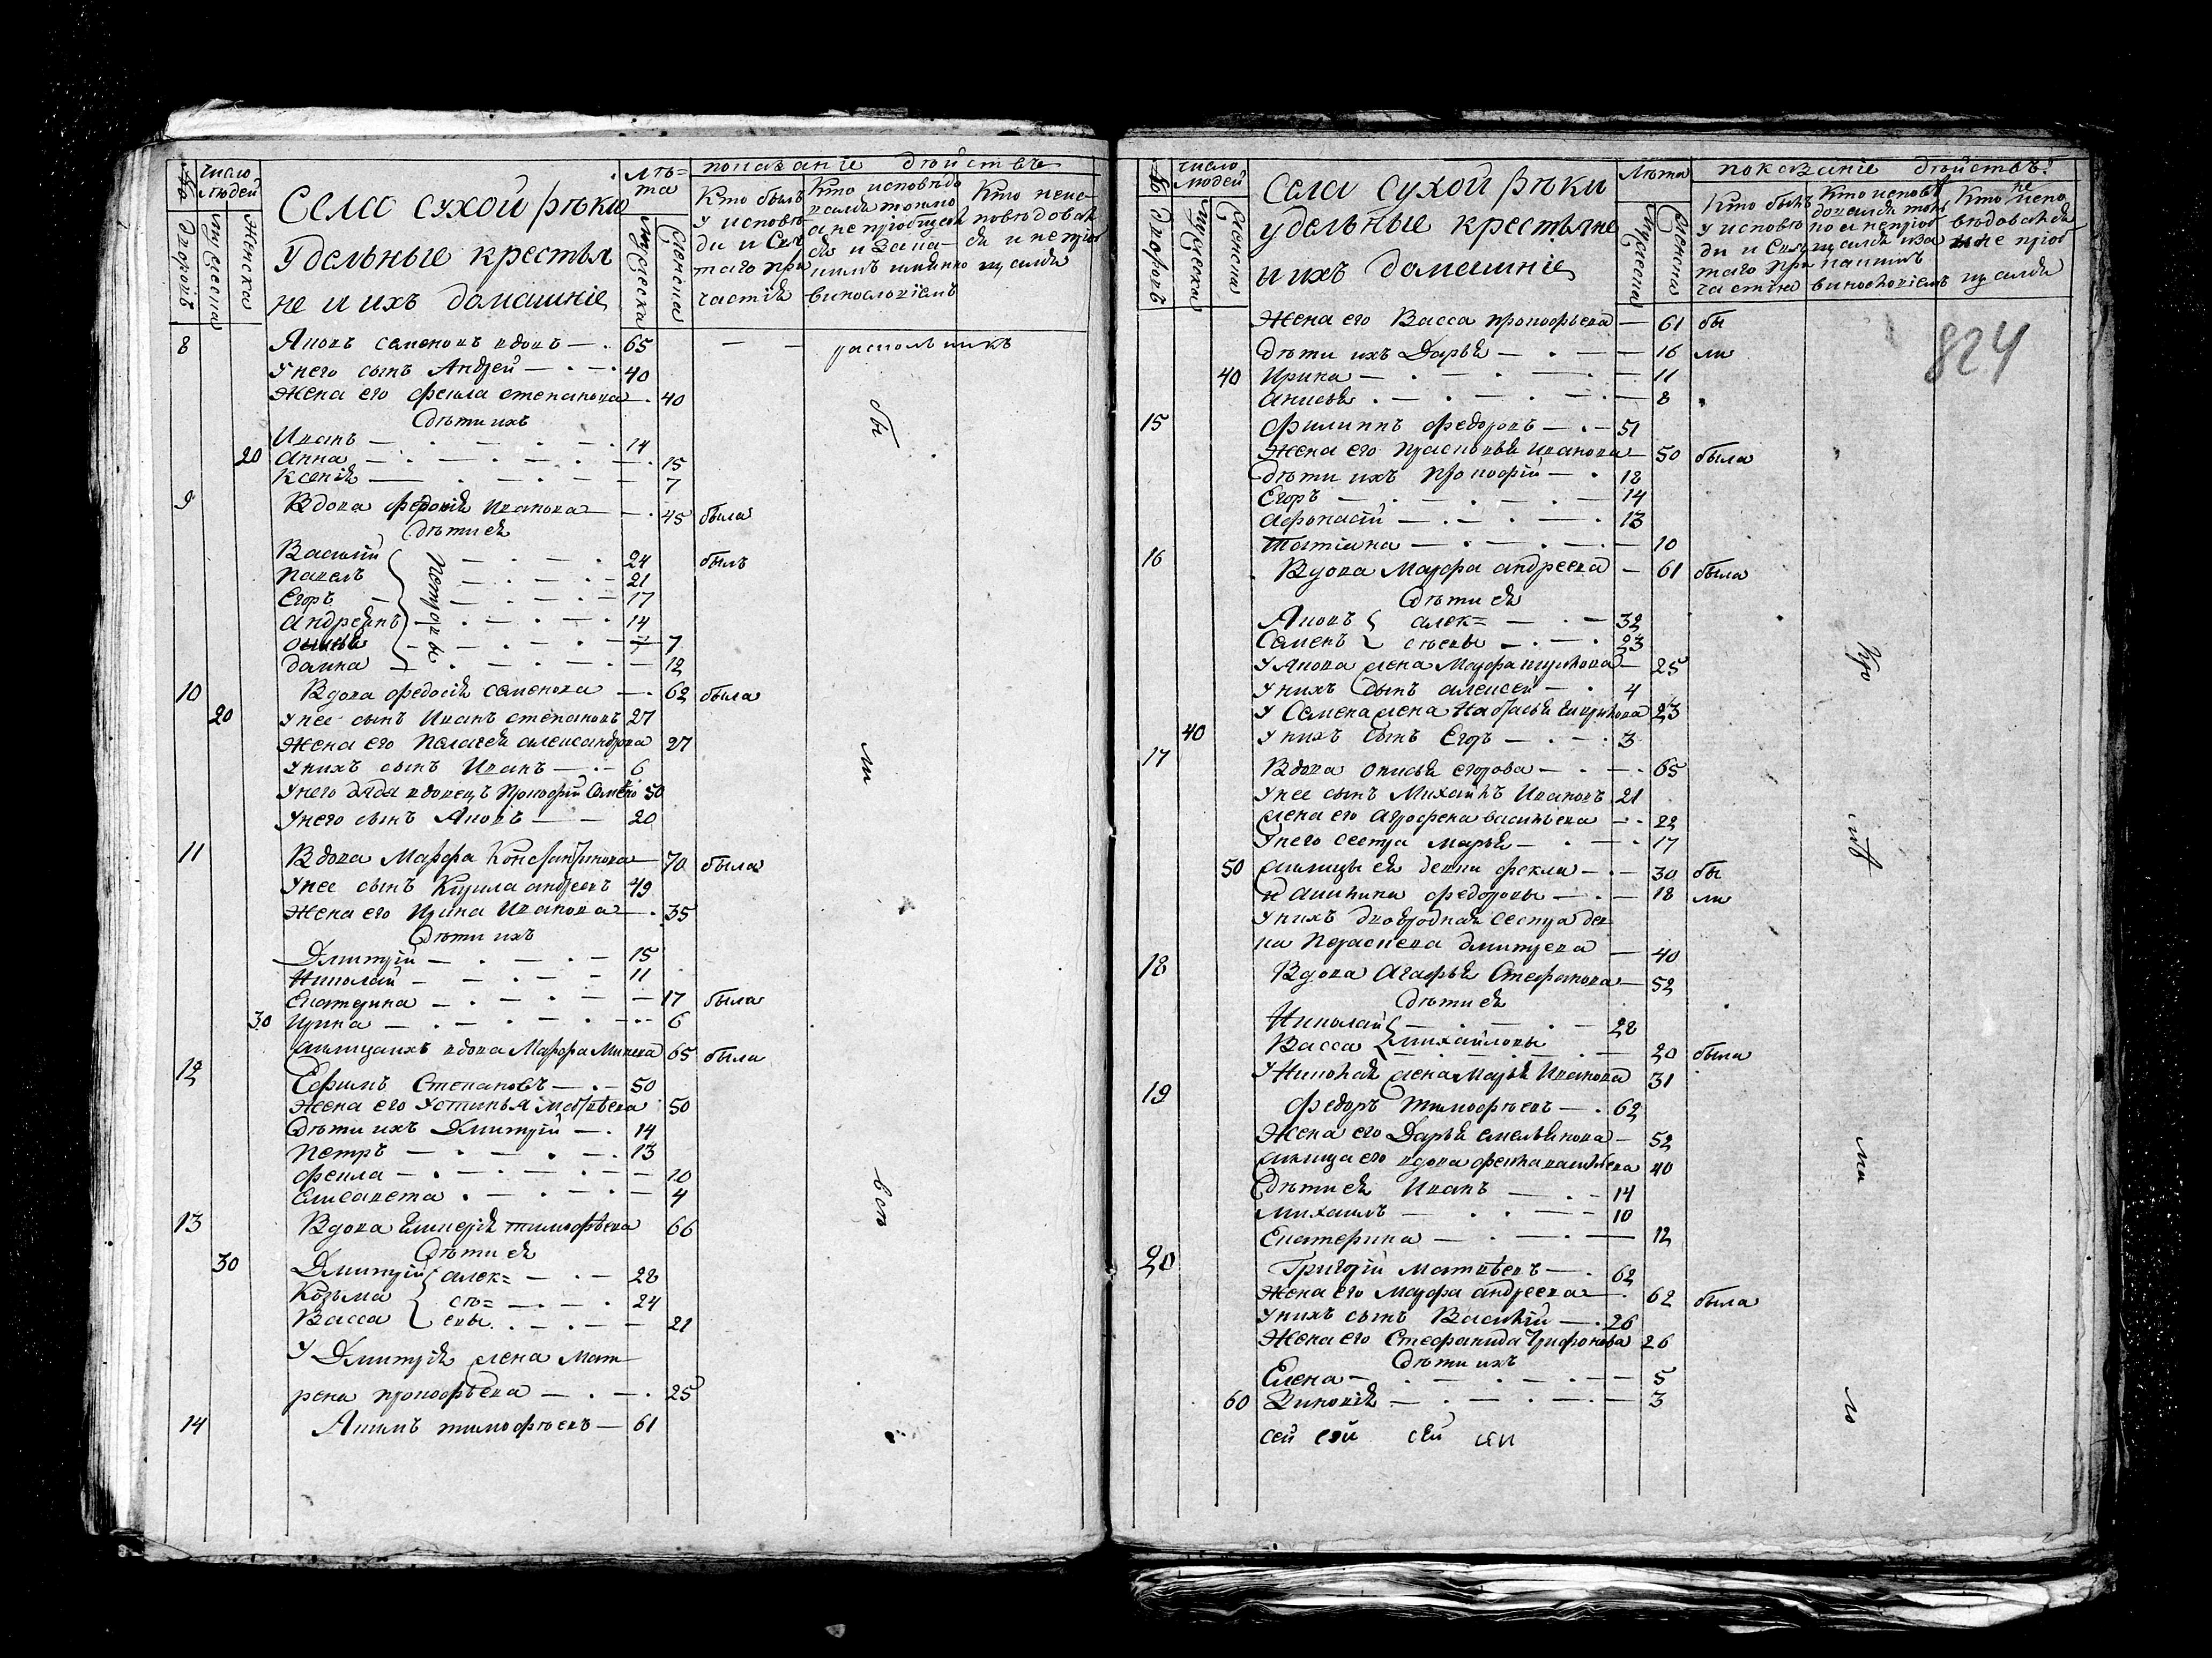 № дворовъ
число людей
мужеска
женска
Села сухой рѣки
удельныѣ крестья
не и ихъ домашніе
лѣ=
та
мужеска
женска
показаніе дѣйствъ
Кто былъ
у исповѣ
ди и Свѧ
таго при
частіѧ
Кто исповѣдо
валсѧ токмо
а непріобщал
сѧ и за ка
кимъ имѧнно
винословіемъ
Кто неис
повѣдовал
сѧ и непріоб
щалсѧ
8 Яковъ семеновъ вдовъ — 65 — — раскольникъ
У него сынъ Андрей — 40
Жена его фекла степанова — 40
Дѣти ихъ
Иванъ — 14
20 Анна — 15
Ксеніѧ — 7
9 Вдова федосіѧ Иванова — 45 была
Дѣти еѧ
Василій — 24 былъ
Павелъ — 21
Егоръ — 17
Андреѧнъ — 14
Петровы
— 7
домна — 12
10 Вдова федосіѧ семенова — 62 была
20 У нее сынъ Иванъ степановъ 27
Жена его Пелагеѧ александрова 27
У нихъ сынъ Иванъ — 6
У него дядѧ вдовецъ Прокофій Семено 50
У него сынъ Яковъ — 20
11 Вдова Марфа Константинова — 70 была
У нее сынъ Кирила андреевъ 49
Жена его Ирина Иванова — 35
Дѣти ихъ
Дмитрій — 15
Николай — 11
Екатерина — 17 была
30 Ирина — 6
жилица ихъ вдова Марфа Микеева 65 была
12 Ефимъ Степановъ — 50
Жена его Устинья матвѣева 50
Дѣти ихъ Дмитрій — 14
Петръ — 13
фекла — 10
Елисавета — 4
13 Вдова Гликеріѧ тимофѣева 66
Дѣти еѧ
30 Дмитрій алек= — 28
Козьма сѣ= — 24
Васса евы — 21
У Дмитріѧ жена Мат
рена прокофьева — 25
14 Якимъ тимофѣевъ — 61
бы
ли
всѣ
№ дворовъ
число людей
мужеска
женска
Села Сухой рѣки
удельныѣ крестьяне
и ихъ домашніе
Лѣта
мужеска
женска
показаніе дѣйствъ
Кто былъ
у исповѣ
ди и Свѧ
таго при
частіѧ
Кто исповѣ
довалсѧ ток
мо а непріоб
щалсѧ и за
какимъ
винословіемъ
Кто не испо
вѣдовалсѧ
и не пріоб
щалсѧ
824
Жена его Васса прокофьева — 61 бы
Дѣти ихъ Дарьѧ — 16 ли
40 Ирина — 11
Анисьѧ — 8
15 Филиппъ федоровъ — 51
Жена его Прасковьѧ Иванова — 50 была
Дѣти ихъ Прокофій — 18
Егоръ — 14
Афонасій — 13
Татіана — 10
16 Вдова Марфа андреева — 61 была
Дѣти еѧ
Яковъ алек= — 32
Семенъ сѣевы — 23
У Якова жена Марфа кирилова — 25
У нихъ сынъ алексей — 4
У Семена жена Настасьѧ 23
40 У нихъ сынъ Егоръ — 3
17 Вдова Анисьѧ егорова — 65
У нее сынъ Михайлъ Ивановъ 21
жена его Агрофена васильева — 22
У него сестра Марьѧ — 17
50 жилицы еѧ девки фекла — 30 бы
и Акилина федоровы — 18 ли
У нихъ двоѣроднаѧ сестра дев
ка Парасковѧ дмитрева — 40
18 Вдова Агафьѧ Стефанова — 52
Дѣти еѧ
Николай — 28
Васса михайловы — 20 была
У Николаѧ жена Марьѧ Иванова 31
19 Федоръ тимофѣевъ — 62
Жена его Дарьѧ емельѧнова — 52
жилица его вдова фекла 40
Дѣти еѧ Иванъ — 14
Михаилъ — 10
Екатерина — 12
20 Григорій матвѣевъ — 62
Жена его Марфа андреева — 62 была
У нихъ сынъ Василій — 26
Жена его Стефанида Трифонова 26
Дѣти ихъ
Елена — 5
60 Зиновіѧ — 3
сей сей сей сей